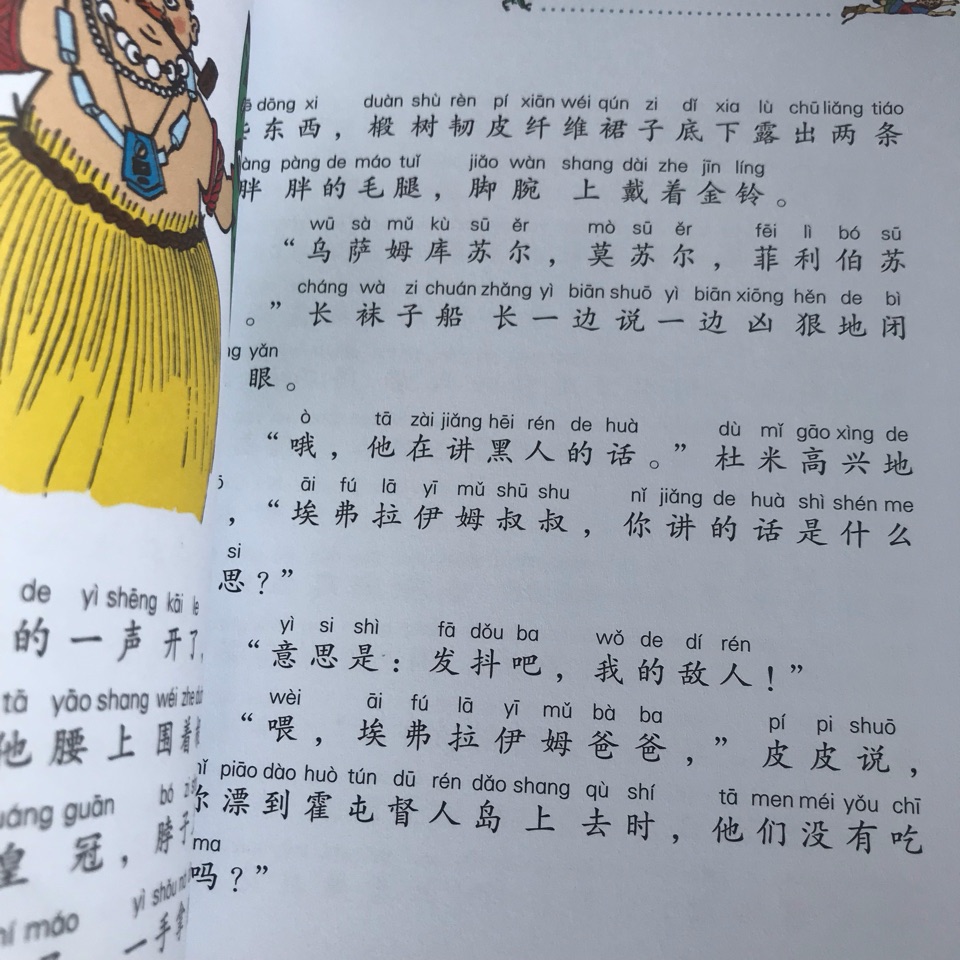 de yì shēng kāi le
的一声开了,
tā yāo shang wéi zhe
他腰上围着
guān bó
皇冠，脖子
máo yì shǒu
一手拿
dōng xi duàn shù rèn pí xiān wéi qún zi dǐ xia lù chū liǎng tiáo
东西，椴树韧皮纤维裙子底下露出两条
pàng de máo tuǐ jiǎo wàn shang dài zhe jīn líng
胖胖的毛腿，脚腕上戴着金铃。
wū sà mǔ kù sū ěr mò sū ěr fēi lì bó sū
“乌萨姆库苏尔，莫苏尔，菲利伯苏
cháng wà zi chuán zhǎng yì biān shuō yì biān xiōng hěn de bì
。”长袜子船长一边说一边凶狠地闭
yǎn
眼。
ò tā zài jiǎng hēi rén de huà dù mǐ gāo xìng de
“哦，他在讲黑人的话。”杜米高兴地
āi fú lā yī mǔ shū shu nǐ jiǎng de huà shì shén me
，“埃弗拉伊姆叔叔，你讲的话是什么
si
思？”
yì si shì fā dǒu ba wǒ de dí rén
“意思是：发抖吧，我的敌人！”
wèi āi fú lā yī mǔ bà ba pí pi shuō
“喂，埃弗拉伊姆爸爸，”皮皮说，
piāo dào huò tún dū rén dǎo shang qù shí tā men méi yǒu chī
漂到霍屯督人岛上去时，他们没有吃
ma
吗？”